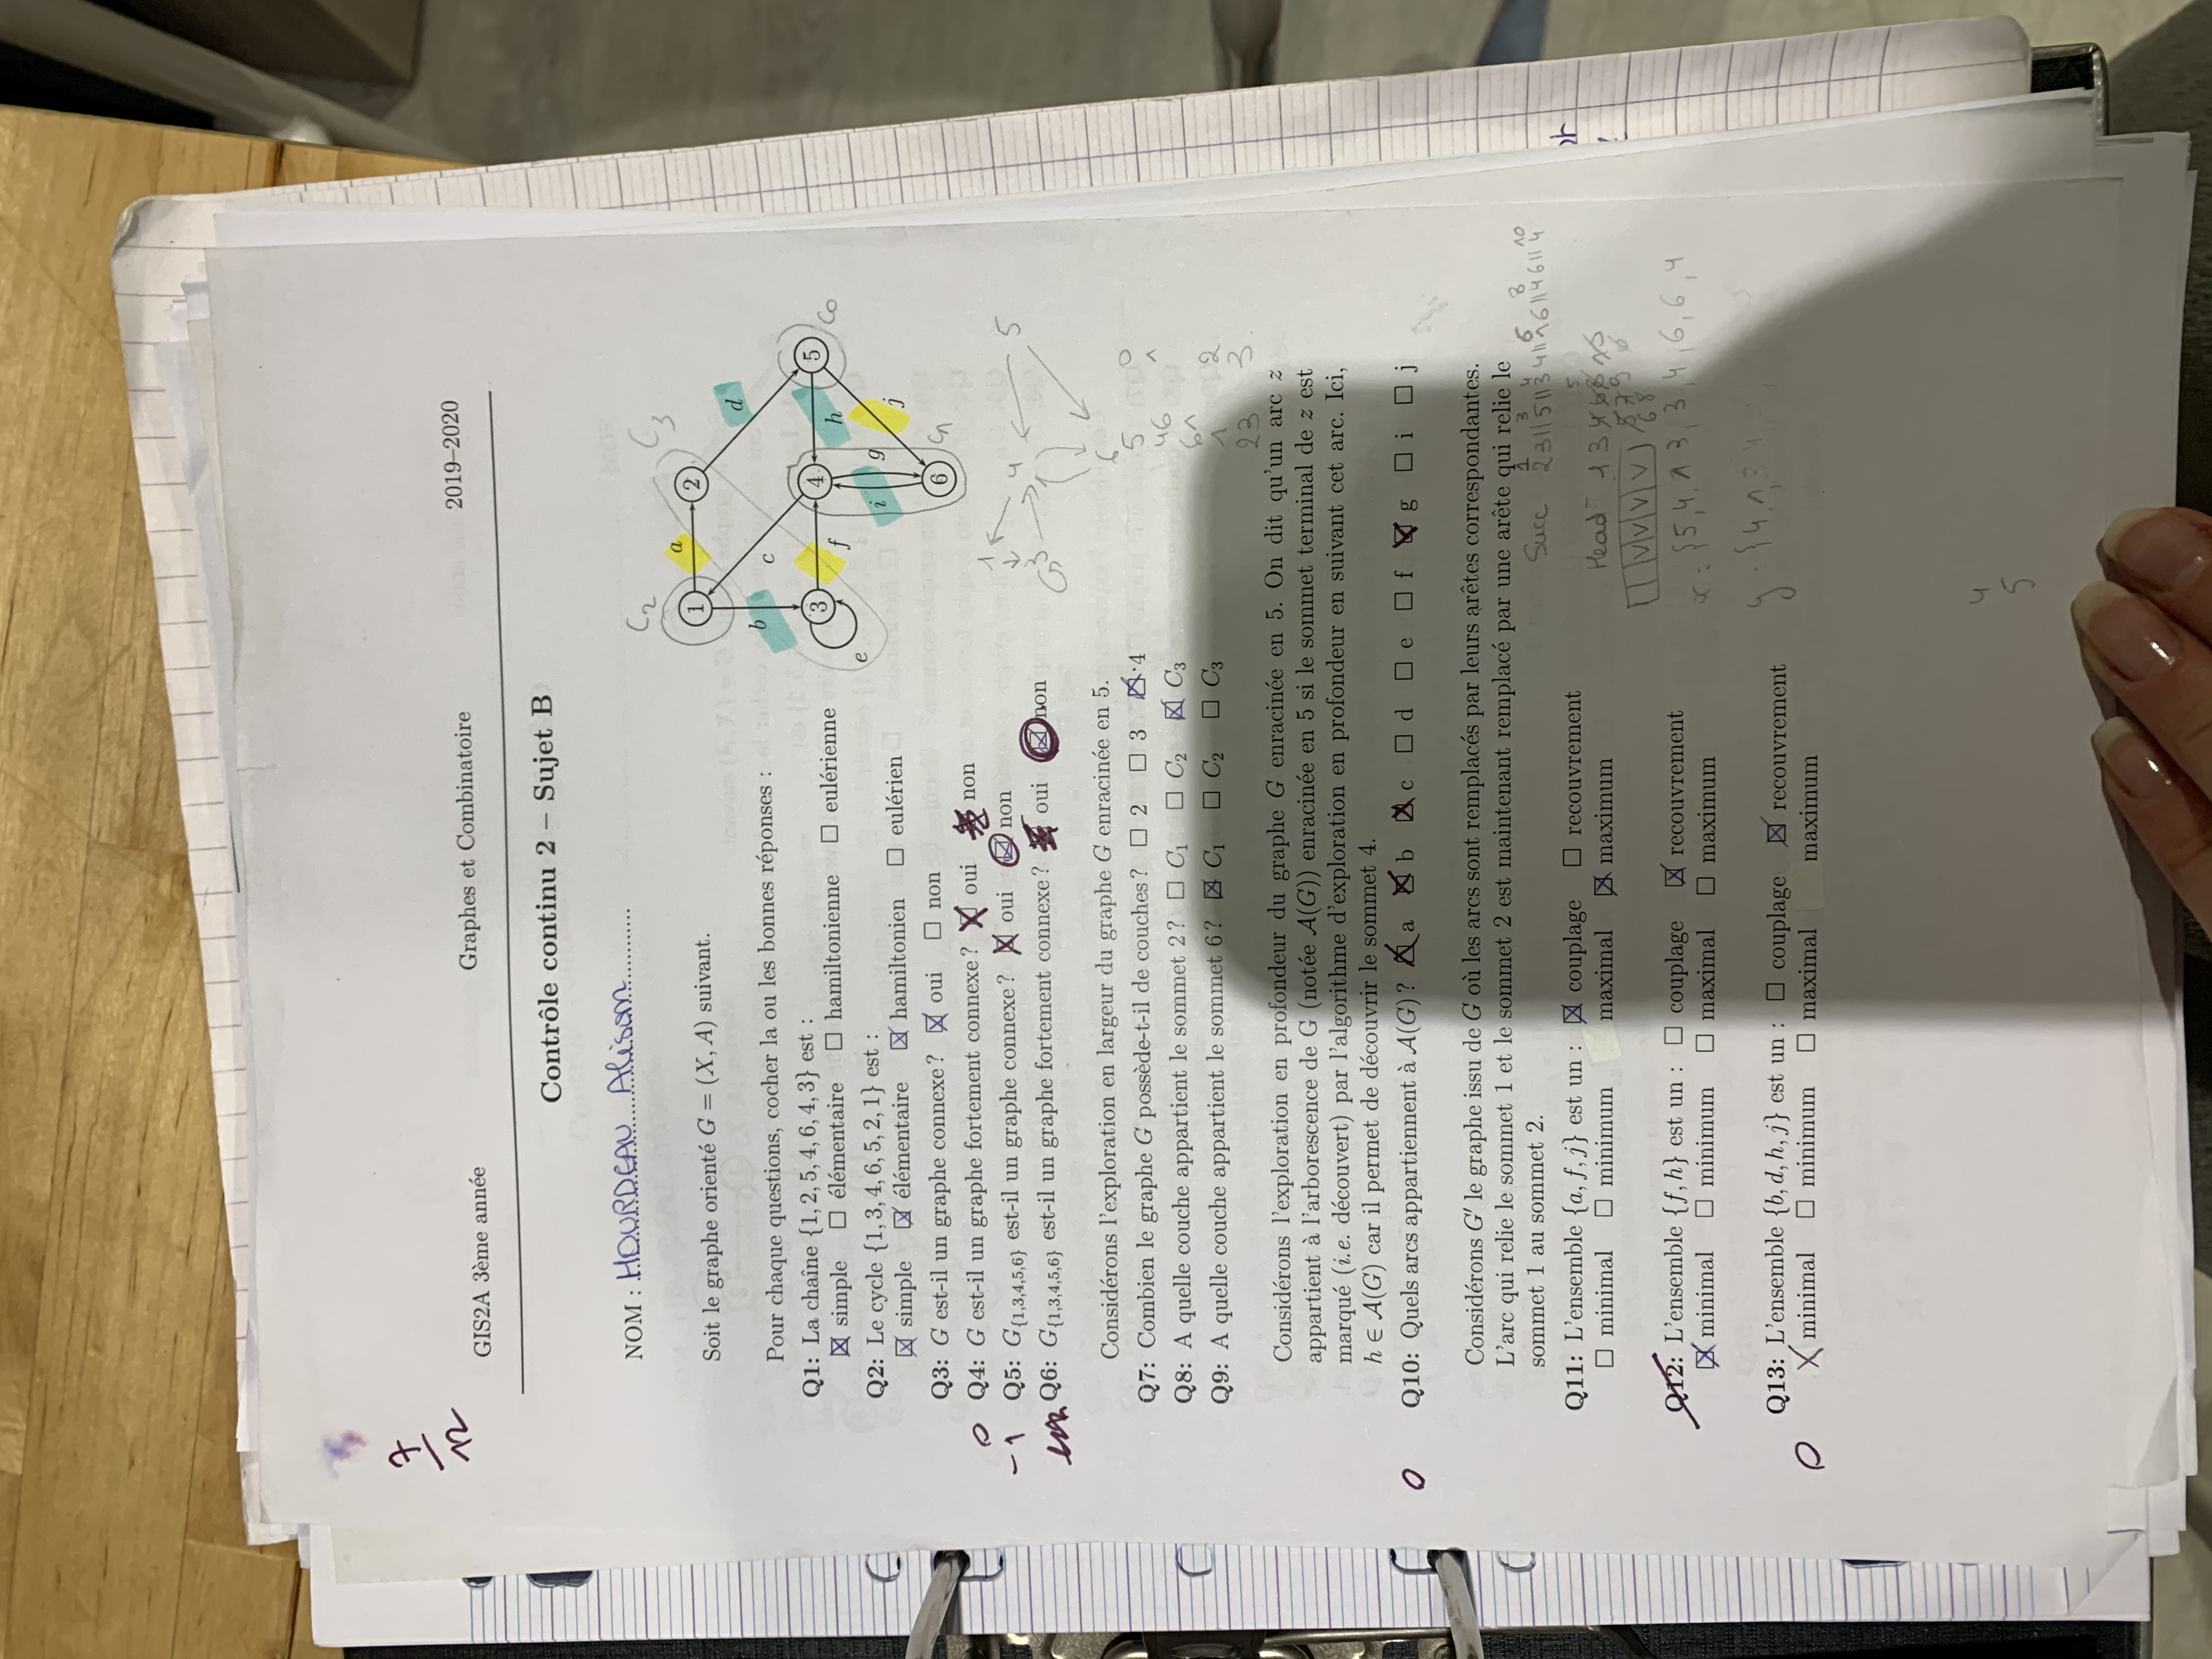 7
12
GIS2A 3ème année Graphes et Combinatoire 2019–2020
Contrôle continu 2 – Sujet B
NOM : HOURDEAU Alison
Soit le graphe orienté G = (X, A) suivant.
Pour chaque questions, cocher la ou les bonnes réponses :
C2 C3
1 a 2
b c d
3 f 4 h 5 C0
e i g j
6 C1
Q1: La chaîne {1, 2, 5, 4, 6, 4, 3} est :
☒ simple ☐ élémentaire ☐ hamiltonienne ☐ eulérienne
Q2: Le cycle {1, 3, 4, 6, 5, 2, 1} est :
☒ simple ☒ élémentaire ☒ hamiltonien ☐ eulérien
Q3: G est-il un graphe connexe ? ☒ oui ☐ non
0 Q4: G est-il un graphe fortement connexe ? ☒ oui ☒ non
-1 Q5: G{1,3,4,5,6} est-il un graphe connexe ? ☒ oui ☒ non
Q6: G{1,3,4,5,6} est-il un graphe fortement connexe ? ☒ oui ☒ non
1 4 5
3
6
Considérons l'exploration en largeur du graphe G enracinée en 5.
5 0
Q7: Combien le graphe G possède-t-il de couches ? ☐ 2 ☐ 3 ☒ 4
46 1
Q8: A quelle couche appartient le sommet 2 ? ☐ C1 ☐ C2 ☒ C3
61
Q9: A quelle couche appartient le sommet 6 ? ☒ C1 ☐ C2 ☐ C3
1 2
23 3
Considérons l'exploration en profondeur du graphe G enracinée en 5. On dit qu'un arc z
appartient à l'arborescence de G (notée A(G)) enracinée en 5 si le sommet terminal de z est
marqué (i.e. découvert) par l'algorithme d'exploration en profondeur en suivant cet arc. Ici,
h ∈ A(G) car il permet de découvrir le sommet 4.
0 Q10: Quels arcs appartiennent à A(G) ? ☒ a ☒ b ☒ c ☐ d ☐ e ☐ f ☒ g ☐ i ☐ j
Considérons G′ le graphe issu de G où les arcs sont remplacés par leurs arêtes correspondantes.
L'arc qui relie le sommet 1 et le sommet 2 est maintenant remplacé par une arête qui relie le
sommet 1 au sommet 2.
1 3 4 6 8 10
Succ 23||5||34||16||46||4
Q11: L'ensemble {a, f, j} est un : ☒ couplage ☐ recouvrement
☐ minimal ☐ minimum maximal ☒ maximum
Head 1 3
Q12: L'ensemble {f, h} est un : ☐ couplage ☒ recouvrement
☒ minimal ☐ minimum ☐ maximal ☐ maximum
x : {5, 4, 1 3, 3, 4, 6, 6, 4
y : {4, 1, 3 4
Q13: L'ensemble {b, d, h, j} est un : ☐ couplage ☒ recouvrement
0 X minimal ☐ minimum ☐ maximal maximum
4
5